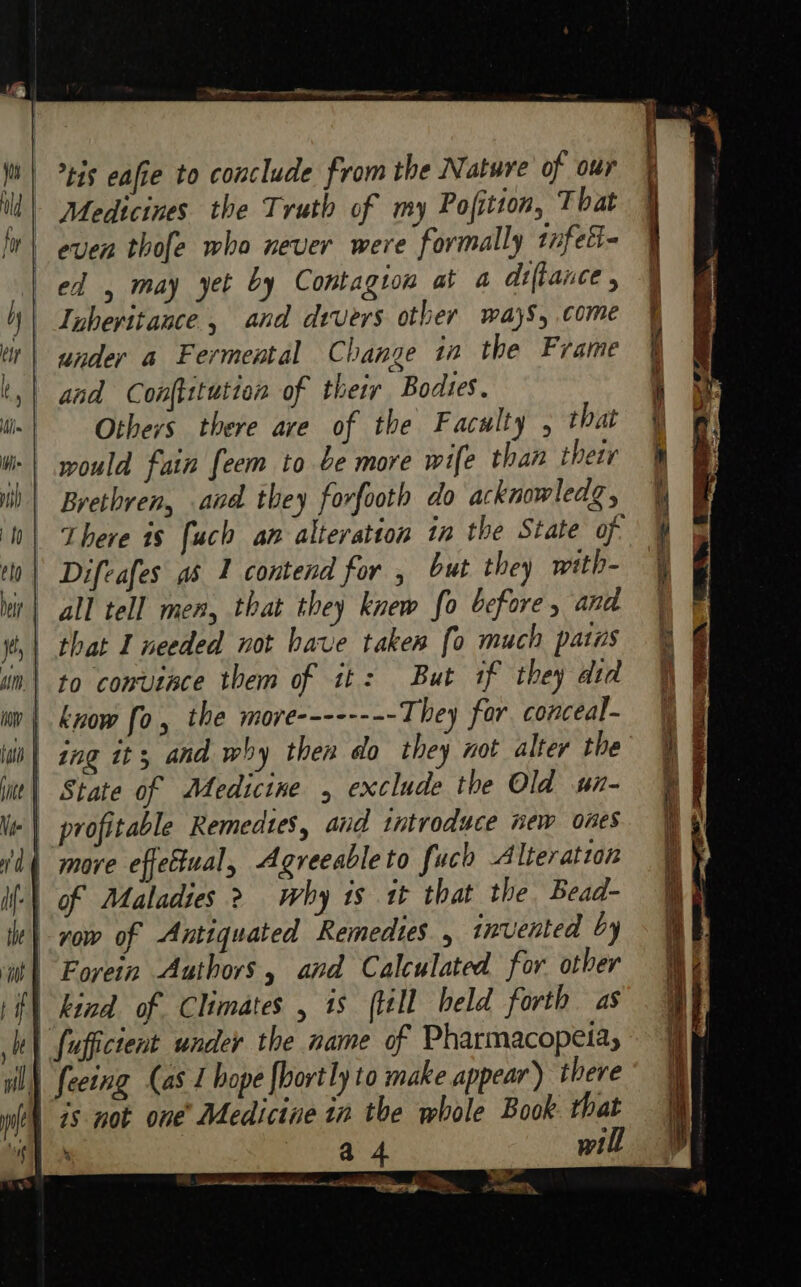 'tis eaſie to conclude from the Nature of our
Medicines the Truth of my Poſition, That
even thoſe who never were formally infect-
ed , may yet by Contagion at a diſtance ,
Inheritance , and divers other ways, come
under a Fermental Change in the Frame
and Conſtitution of their Bodies.
Others there are of the Faculty , that
would fain ſeem to be more wiſe than their
Brethren, and they forſooth do acknowledg,
There is ſuch an alteration in the State of
Diſeaſes as I contend for , but they with-
all tell men, that they knew ſo before, and
that I needed not have taken ſo much pains
to convince them of it : But if they did
know ſo, the more--------They for conceal-
ing it ; and why then do they not alter the
State of Medicine , exclude the Old un-
profitable Remedies, and introduce new ones
more effectual, Agreeable to ſuch Alteration
of Maladies ? Why is it that the Bead-
row of Antiquated Remedies , invented by
Forein Authors , and Calculated for other
kind of Climates , is ſtill held forth as
ſufficient under the name of Pharmacopeia,
ſeeing (as I hope ſhortly to make appear) there
is not one Medicine in the whole Book that
a 4 will